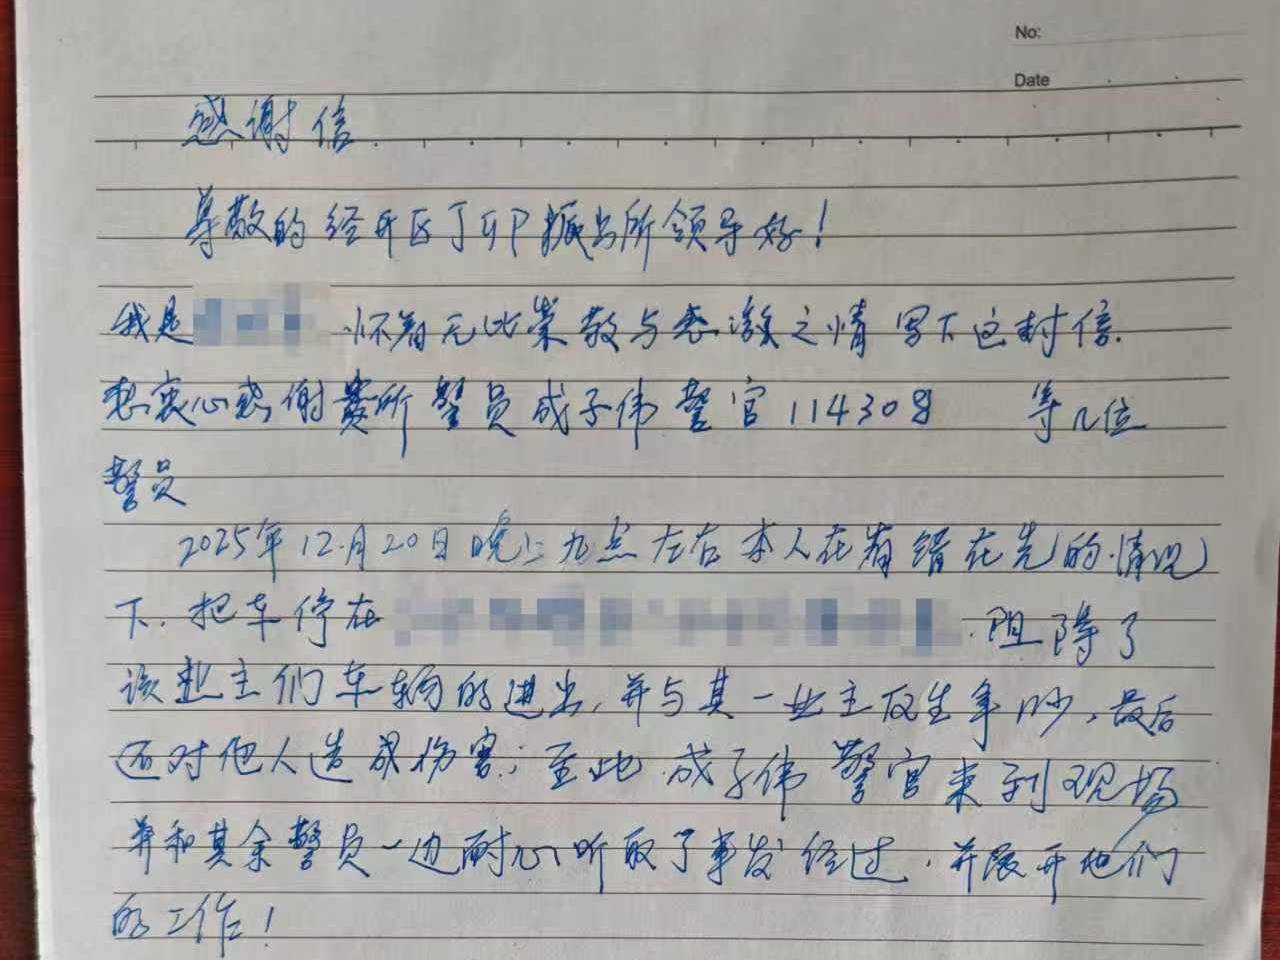 No:
Date
感谢信
尊敬的经开区丁卯派出所领导好！
我是 怀着无比崇敬与感激之情写下这封信.
想衷心感谢贵所警员成子伟警官114308 等几位
警员
2025年12月20日晚上九点左右本人在有错在先的情况
下.把车停在 .阻障了
该业主们车辆的进出,并与其一业主发生争吵,最后
还对他人造成伤害;至此.成子伟警官来到现场
并和其余警员一边耐心听取了事发经过.并展开他们
的工作!